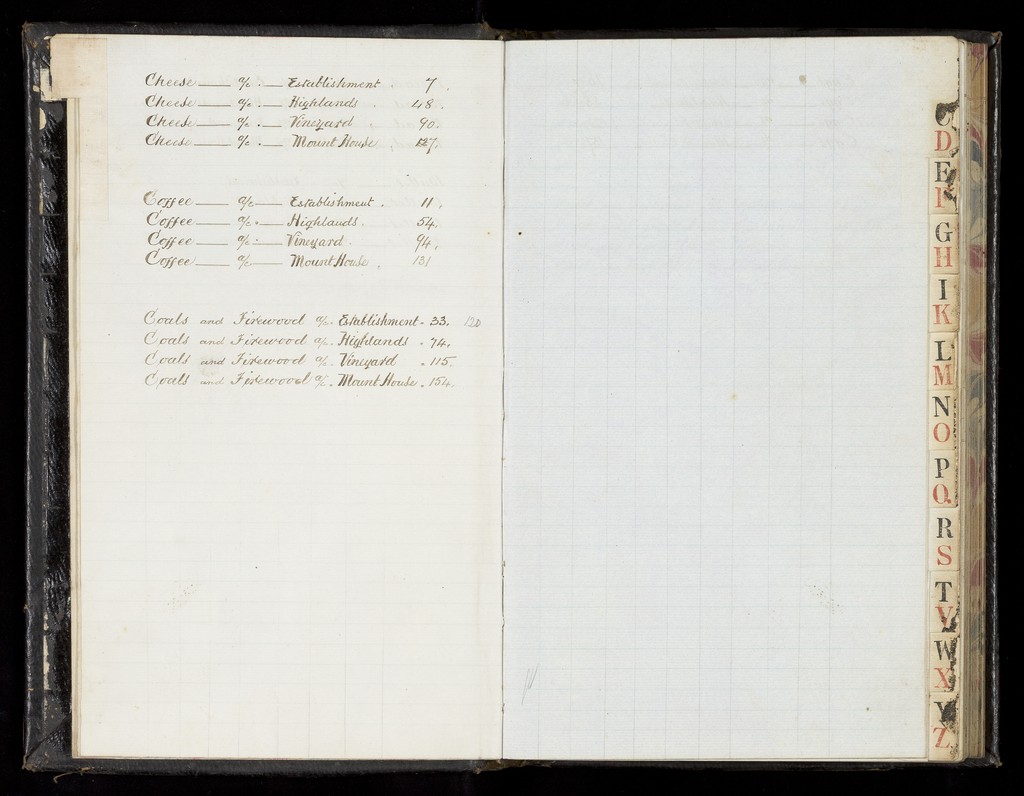 Cheese —— a/c. — Establishment . 7.
Cheese —— a/c. — Highlands . 48.
Cheese —— a/c. — Vineyard . 90.
Cheese —— a/c. — Mount House . 127.
Coffee —— a/c — Establishment . 11.
Coffee —— a/c. — Highlands . 54.
Coffee —— a/c. — Vineyard . 94.
Coffee —— a/c — Mount House . 131
Coals and Firewood a/c. Establishment . 33. 120
Coals and Firewood a/c. Highlands . 74.
Coals and Firewood a/c. Vineyard . 115.
Coals and Firewood a/c. Mount House . 154.
C
D
E
F
G
H
I
K
L
M
N
O
P
Q
R
S
T
V
W
X
Y
Z